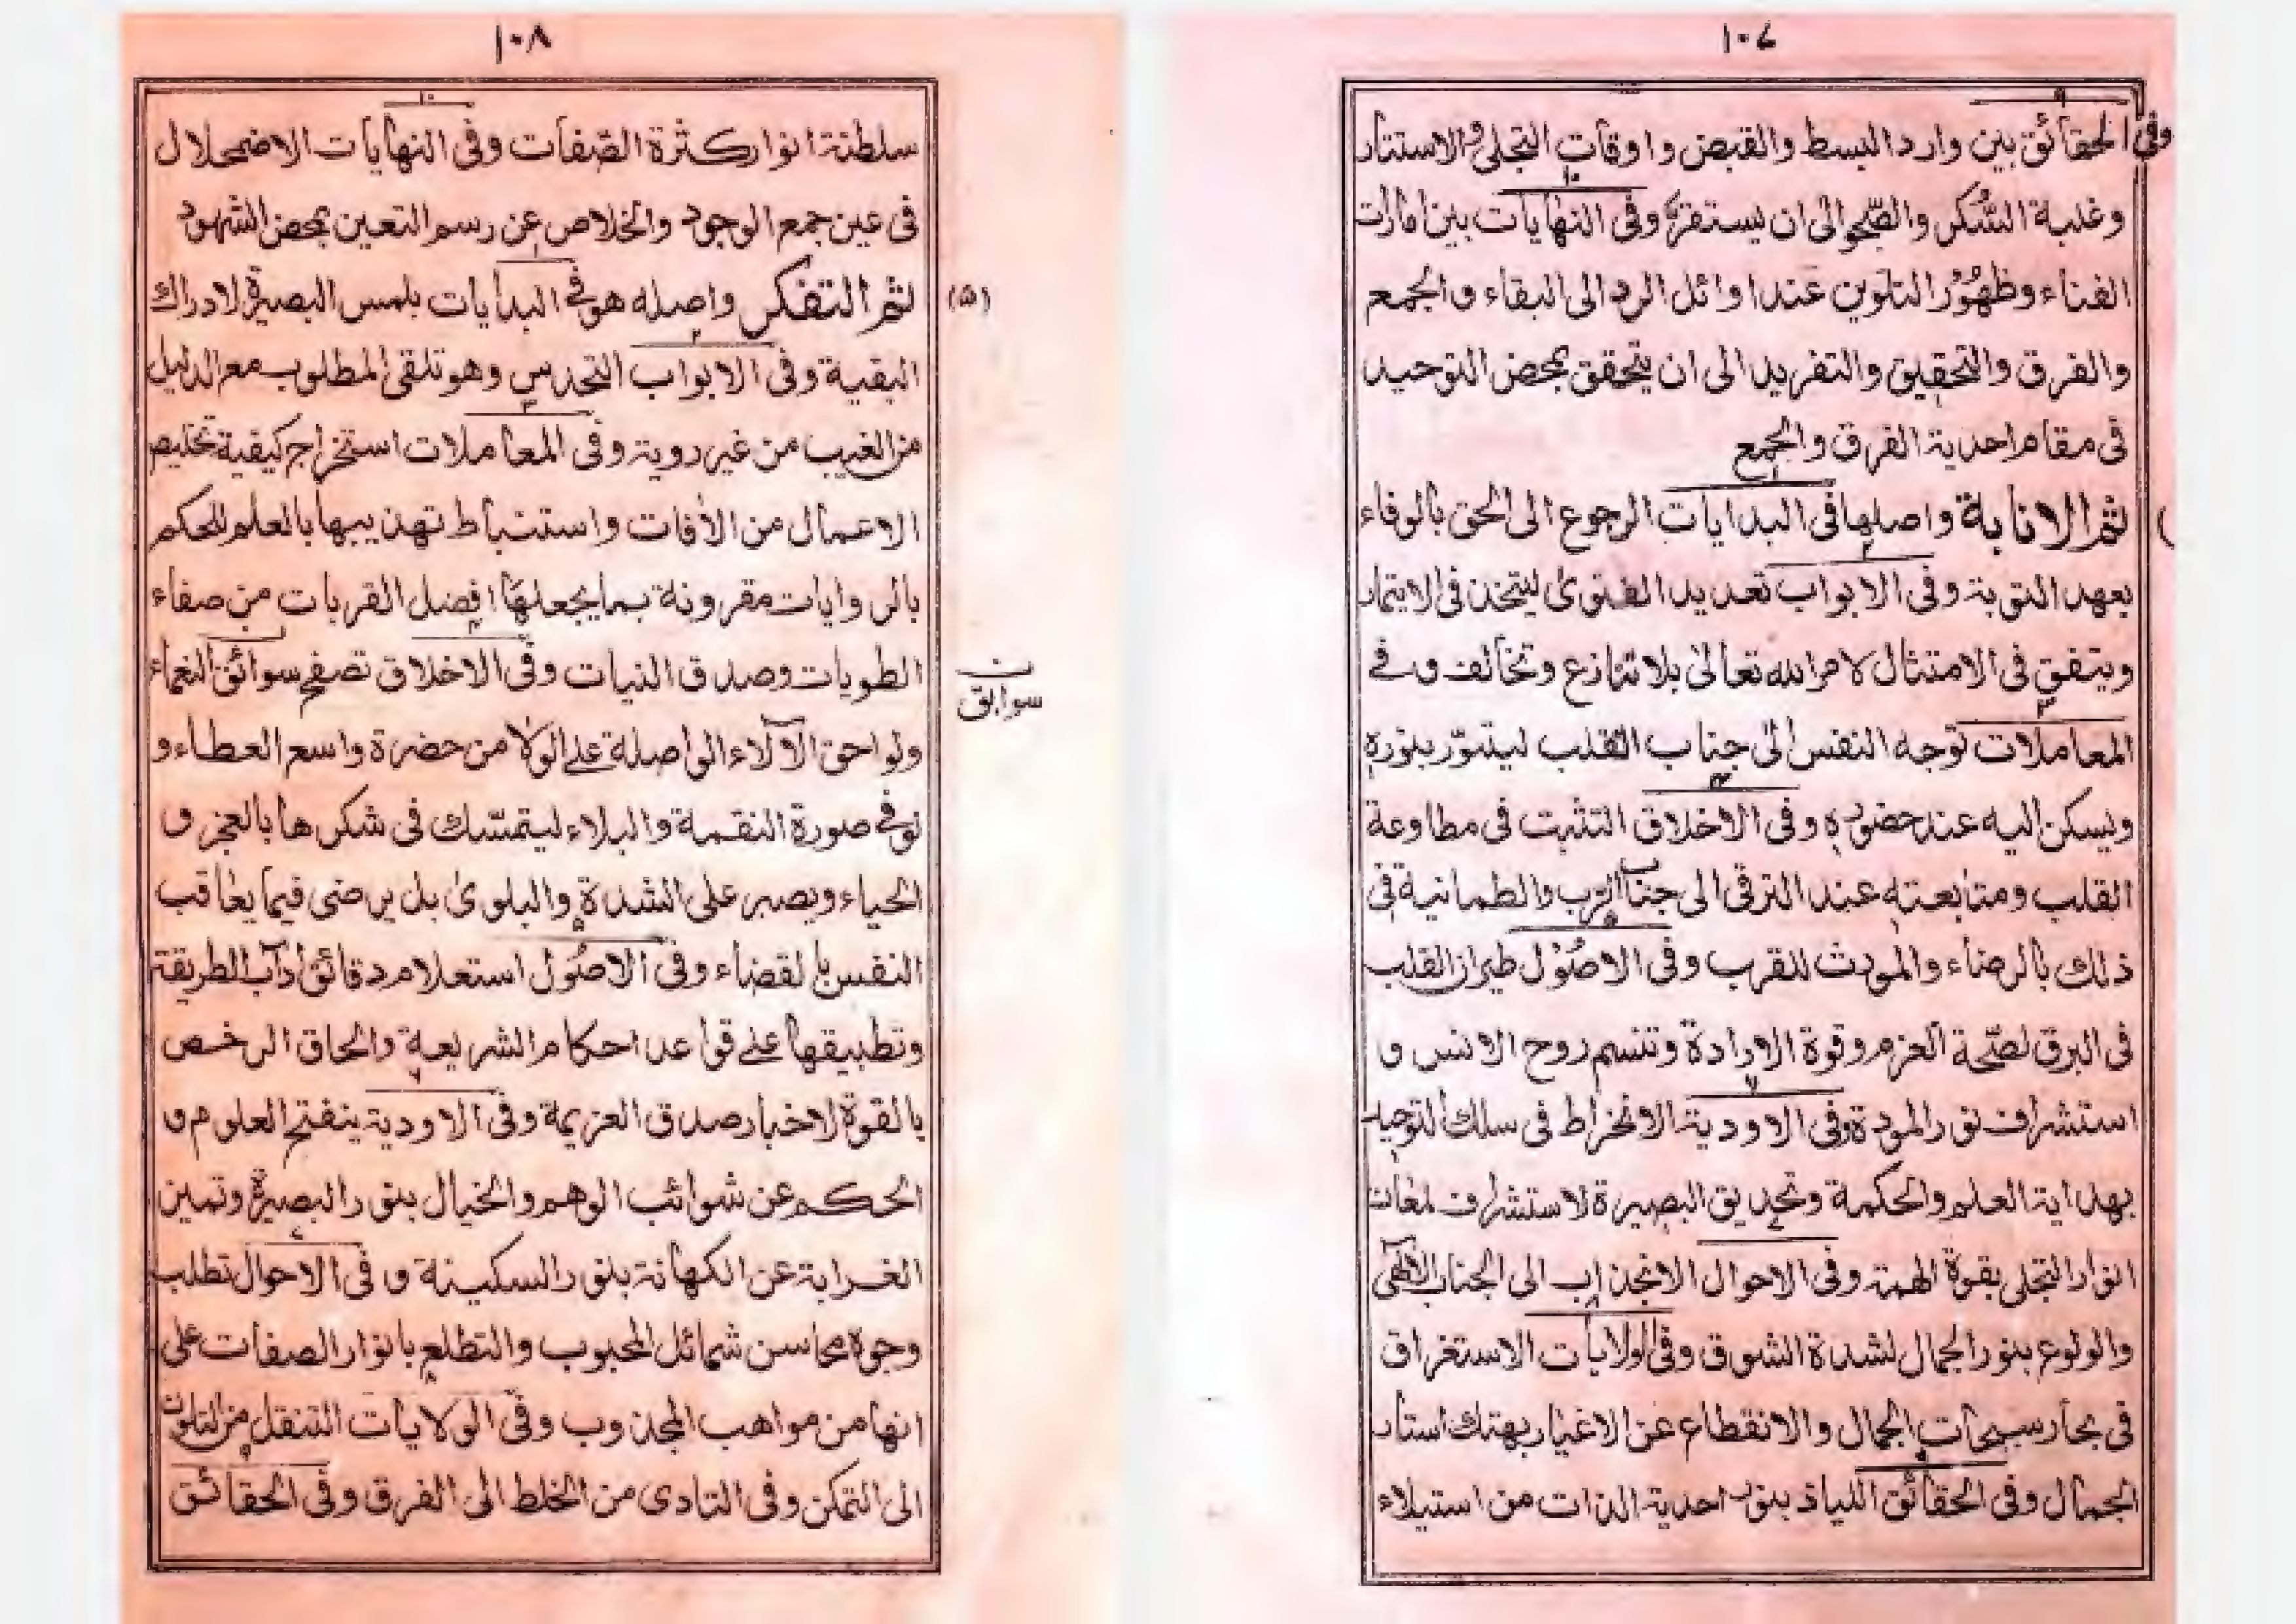 ١٠٧
وفى الحقائق بين وارد البسط والقبض واوقات التجلى والاستتار
وغلبة السُكر والصّحو الى ان يستقرّ وفى النهايات بين امارات
الفناء وظهُوُر التلوين عند اوائل الرد الى البقاء والجمع
والفرق والتحقيق والتفريد الى ان يتحقق بمحض التوحيد
فى مقام احدية الفرق والجمع
ثم الانابة واصلها فى البدايات الرجوع الى الحق بالوفاء
بعهد التوبة وفى الابواب تعديد القوىٰ ليتخذ فى الايتمار
ويتفق فى الامتثال لامر الله تعالىٰ بلا تنازع وتخالف وفى
المعاملات توجه النفس الى جناب القلب ليتنوّر بنوره
ويسكن اليه عند حضوره وفى الاخلاق التثبت فى مطاوعة
القلب ومتابعته عند الترقى الى جناب الرب والطمانية فى
ذلك بالرضاء والمودت للقرب وفى الاصُوْل طيران القلب
فى البرق لصّحة العزم وقوة الارادة وتنسم روح الانس و
استشراف نور المودة وفى الاودية الانخراط فى سلك التوحيد
بهداية العلم والحكمة وتحديق البصيرة لاستشراف لمعات
انوار التجلى بقوة الهمة وفى الاحوال الانجذاب الى الجناب الالٰهى
والولوع بنور الجمال لشدة الشوق وفى الولايات الاستغراق
فى بحار سبحات الجمال والانقطاع عن الاغيار بهتك استار
الجمال وفى الحقائق اللياذ بنور احدية الذات من استيلاء
١٠٨
سلطنة انوار كثرة الصّفات وفى النهايات الاضمحلال
فى عين جمع الوجود والخلاص عن رسم التعين بمحض الشهود
(٥) ثم التفكر واصله هو فى البدايات بلمس البصيرة لادراك
البقية وفى الابواب التحدس وهو تلقى المطلوب مع الدليل
من الغيب من غير روية وفى المعاملات استخراج كيفية تخليص
الاعمال من الأفات واستنباط تهذيبها بالعلم المحكم
بالروايات مقرونة بما يجعلها افضل القربات من صفاء
الطويات وصدق النيات وفى الاخلاق تصفح سوائق النعماء
ن
سوابق
ولواحق الآلاء الواصلة على الولا من حضرة واسع العطاء و
لو فى صورة النقمة والبلاء ليتمسّك فى شكرها بالعجز و
الحياء ويصبر على الشدة والبلوىٰ بل يرضى فيما يعاقب
النفس بالقضاء وفى الاصُوْل استعلام دقائق آداب الطريقة
وتطبيقها على قواعد احكام الشريعة والحاق الرخص
بالقوة لاخبار صدق العزيمة وفى الاودية ينفتح العلوم و
الحكم عن شوائب الوهم والخيال بنور البصيرة وتميز
الغرابة عن الكهانة بنور السكينة و فى الاحوال تطلب
وجوه محاسن شمائل المحبوب والتطلع بانوار الصفات على
انها من مواهب المجذوب وفى الولايات التنقل من التلوين
الى التمكن وفى التادى من الخلط الى الفرق وفى الحقائق